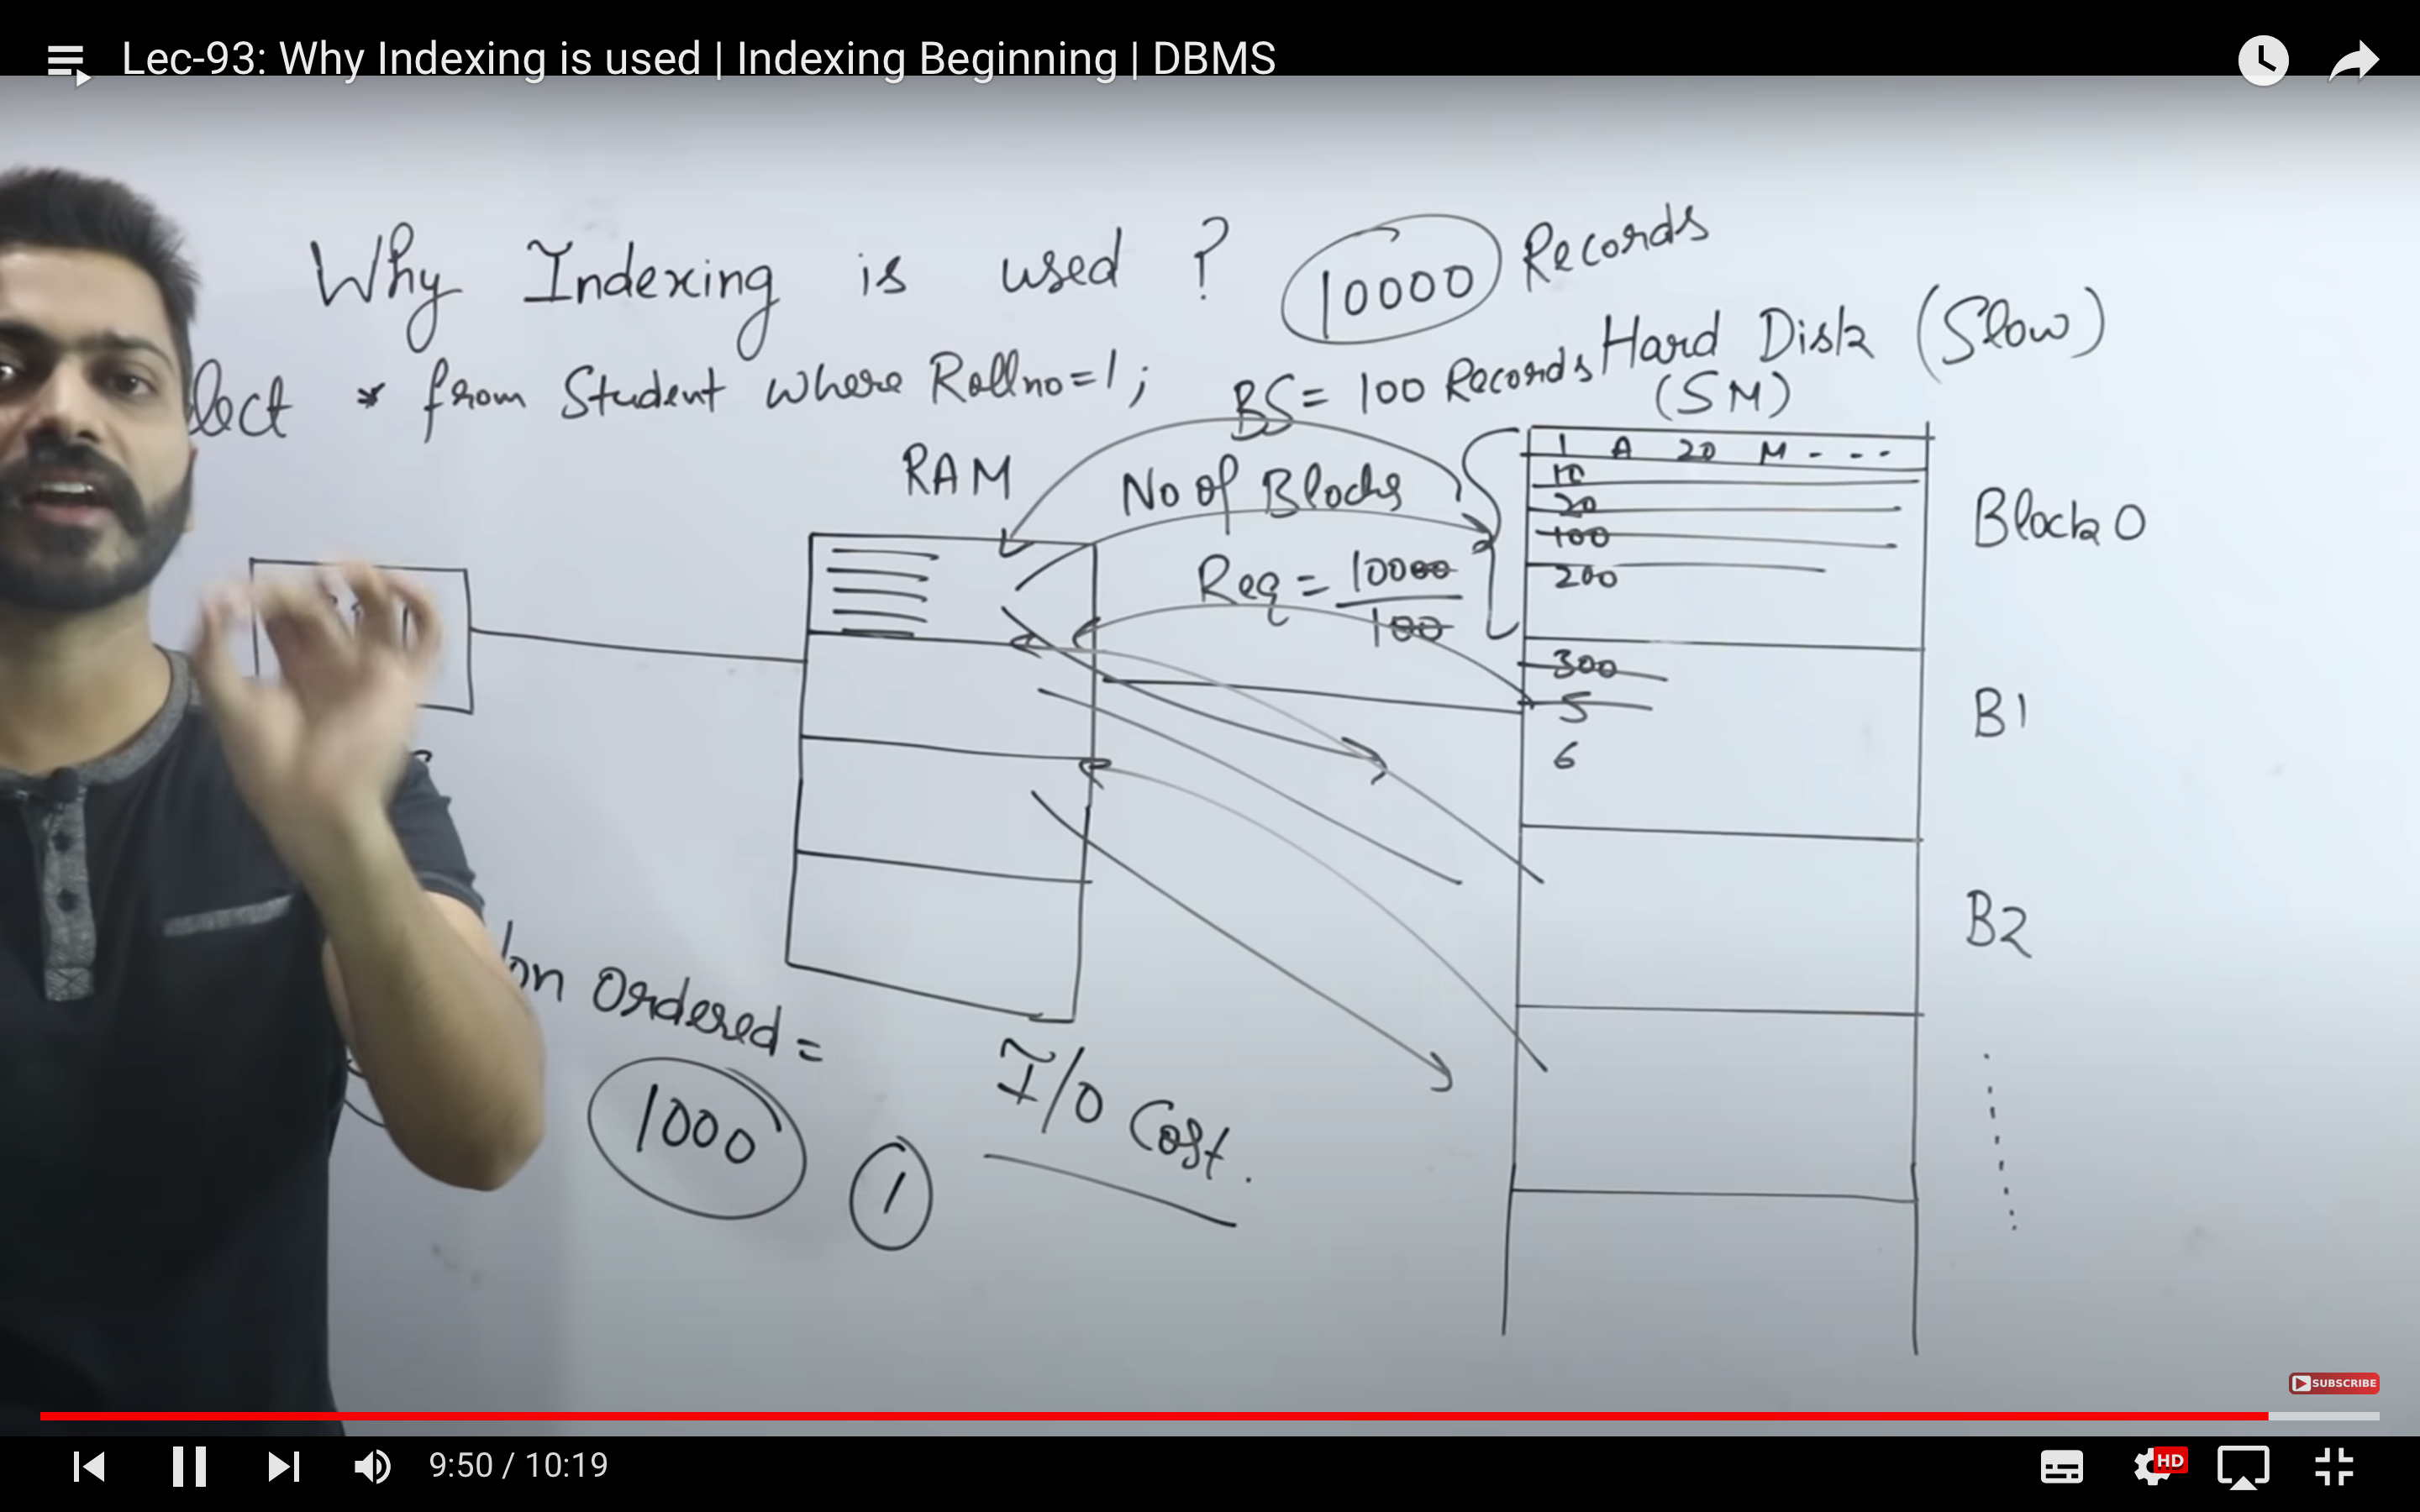 Lec-93: Why Indexing is used | Indexing Beginning | DBMS
Why Indexing is used ?
10000 Records
lect * from Student where Rollno=1;
BS= 100 Records
Hard Disk (Slow)
(SM)
RAM
No of Blocks
Req = 10000
100
1 A 20 M - - -
10
20
100
200
Block 0
300
5
6
B1
B2
on Ordered =
1000
1
I/O Cost.
SUBSCRIBE
9:50 / 10:19
HD